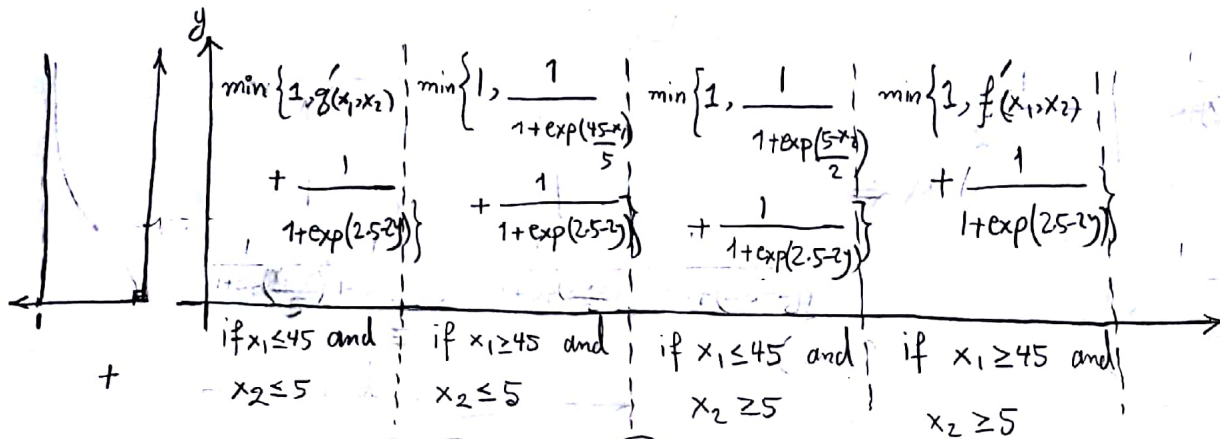 y
min{1, g'(x₁,x₂) + 1/(1+exp(2.5-2y))}
min{1, 1/(1+exp((45-x₁)/5)) + 1/(1+exp(2.5-2y))}
min{1, 1/(1+exp((5-x₂)/2)) + 1/(1+exp(2.5-2y))}
min{1, f'(x₁,x₂) + 1/(1+exp(2.5-2y))}
if x₁≤45 and
x₂≤5
if x₁≥45 and
x₂≤5
if x₁≤45 and
x₂≥5
if x₁≥45 and
x₂≥5
+